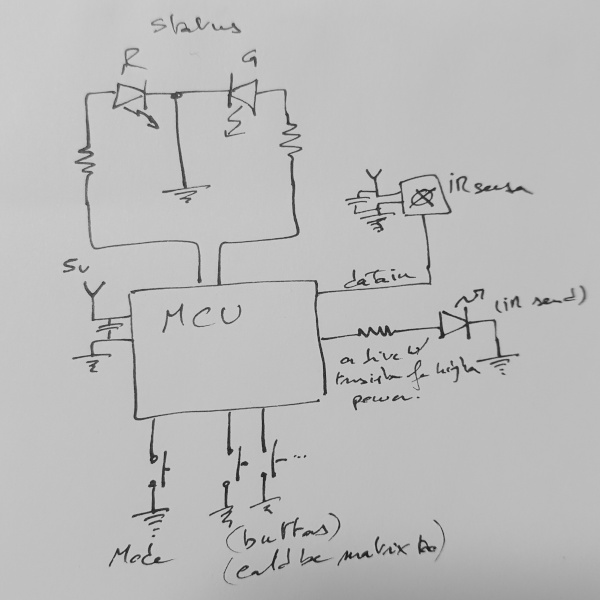 status
R
G
iR sensor
5v
data in
MCU
(iR send)
or drive w/
transistor for higher
power.
Mode
(buttons)
(could be matrix too)